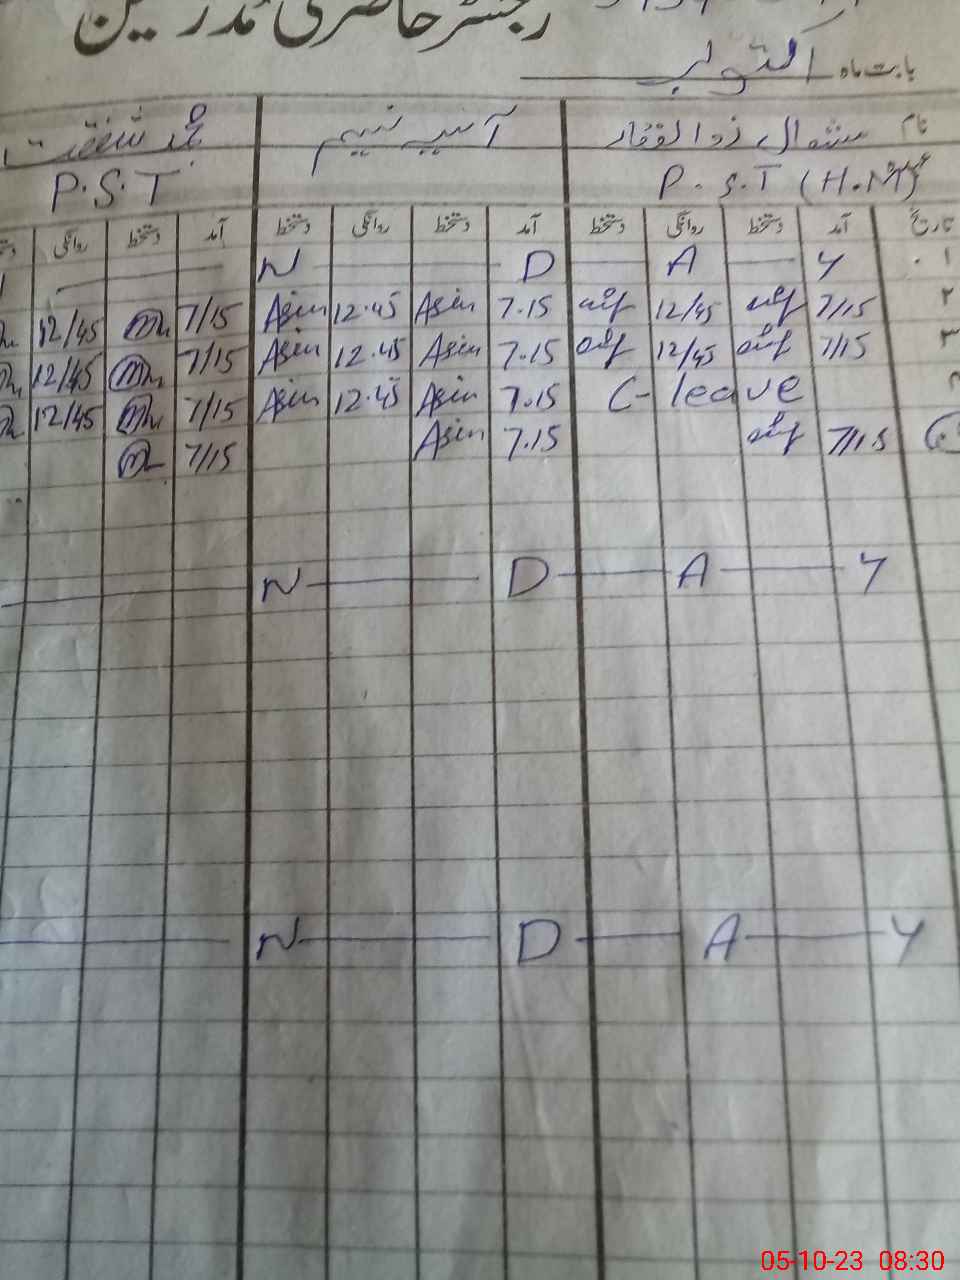 رجسٹر حاضری مدرسین
بابت ماہ اکتوبر
نام شوال ذوالفقار آسیہ نسیم محمد شفقت
عہدہ P.S.T (H.M) P.S.T
تاریخ آمد دستخط روانگی دستخط آمد دستخط روانگی دستخط آمد دستخط روانگی
۱ Y A D N
۲ 7/15 12/45 7.15 Asim 12.45 Asim 7/15 12/45
۳ 7/15 12/45 7.15 Asim 12.45 Asim 7/15 12/45
C-leave 7.15 Asim 12.45 Asim 7/15 12/45
7/15 7.15 Asim 7/15
Y A D N
Y A D N
05-10-23 08:30